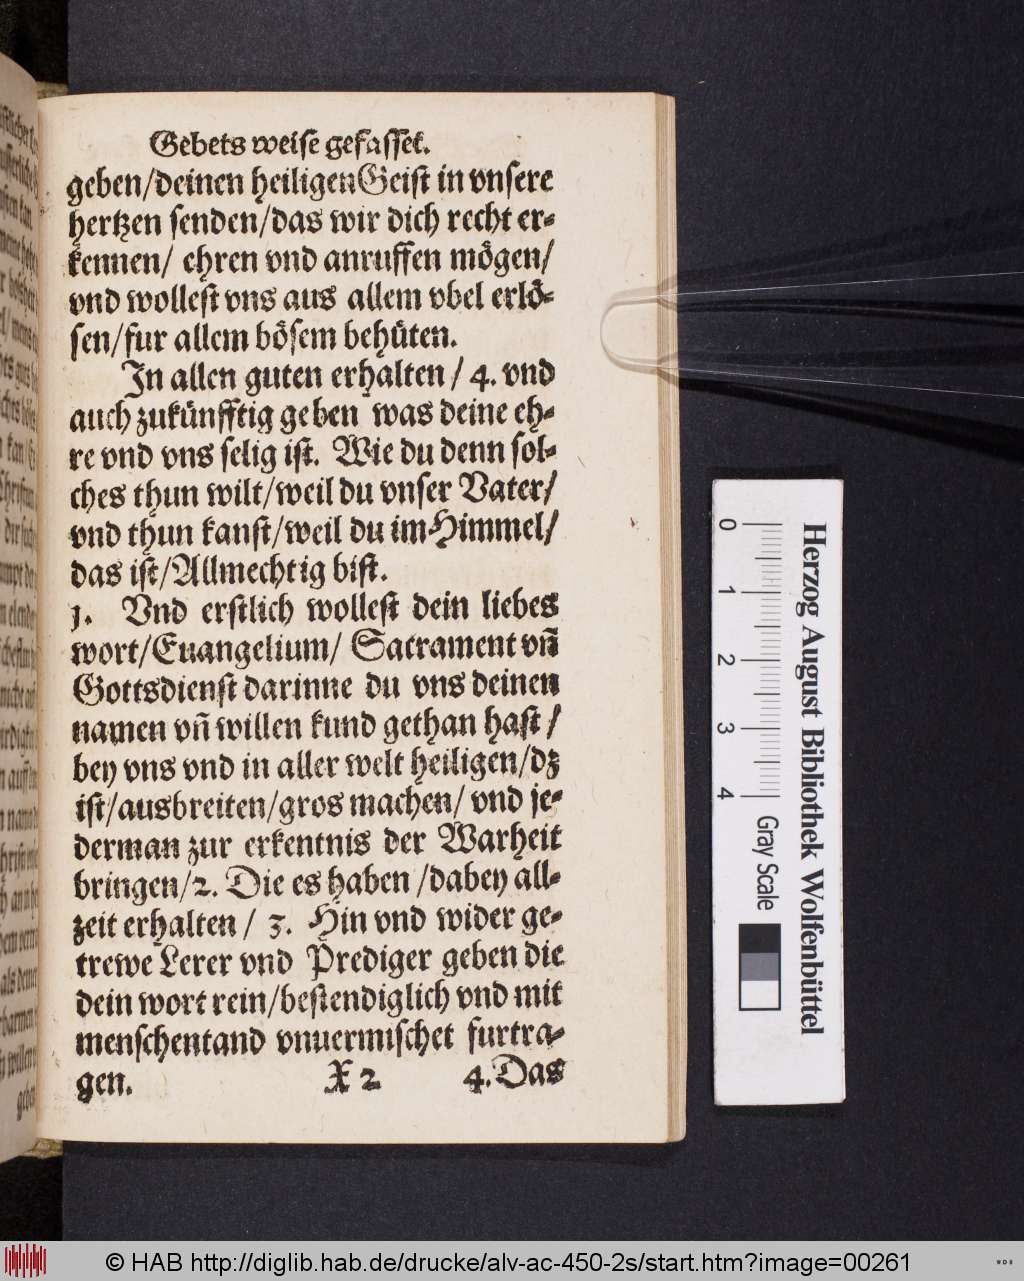 Gebets weise gefasset.
geben/deinen heiligen Geist in vnsere
hertzen senden/das wir dich recht er-
kennen/ ehren vnd anruffen mögen/
vnd wollest vns aus allem vbel erlö-
sen/fur allem bösem behüten.
In allen guten erhalten / 4. vnd
auch zukünfftig geben was deine eh-
re vnd vns selig ist. Wie du denn sol-
ches thun wilt/weil du vnser Vater/
vnd thun kanst/weil du im Himmel/
das ist/Allmechtig bist.
1. Vnd erstlich wollest dein liebes
wort/Euangelium/ Sacrament vñ
Gottsdienst darinne du vns deinen
namen vñ willen kund gethan hast /
bey vns vnd in aller welt heiligen/dz
ist/ausbreiten/gros machen/ vnd je-
derman zur erkentnis der Warheit
bringen/2. Die es haben /dabey all-
zeit erhalten / 3. Hin vnd wider ge-
trewe Lerer vnd Prediger geben die
dein wort rein/bestendiglich vnd mit
menschentand vnuermischet furtra-
gen. X 2 4. Das
0 1 2 3 4 Gray Scale
Herzog August Bibliothek Wolfenbüttel
© HAB http://diglib.hab.de/drucke/alv-ac-450-2s/start.htm?image=00261